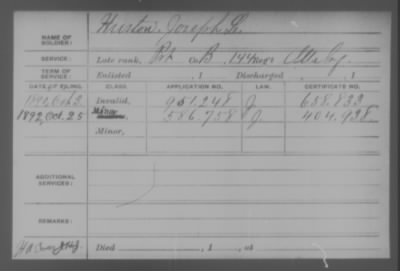 NAME OF SOLDIER: Huston, Joseph
SERVICE: Late rank, Pvt Co. B, 144 Reg't Ills Inf.
TERM OF SERVICE: Enlisted , 1 Discharged , 1
DATE OF FILING. CLASS. APPLICATION NO. LAW. CERTIFICATE NO.
1890, Oct. 2 Invalid, 951.248 J 658.833
1892, Oct. 25 586.758 J 404.938
Minor,
ADDITIONAL SERVICES:
REMARKS:
Died , 1 , at